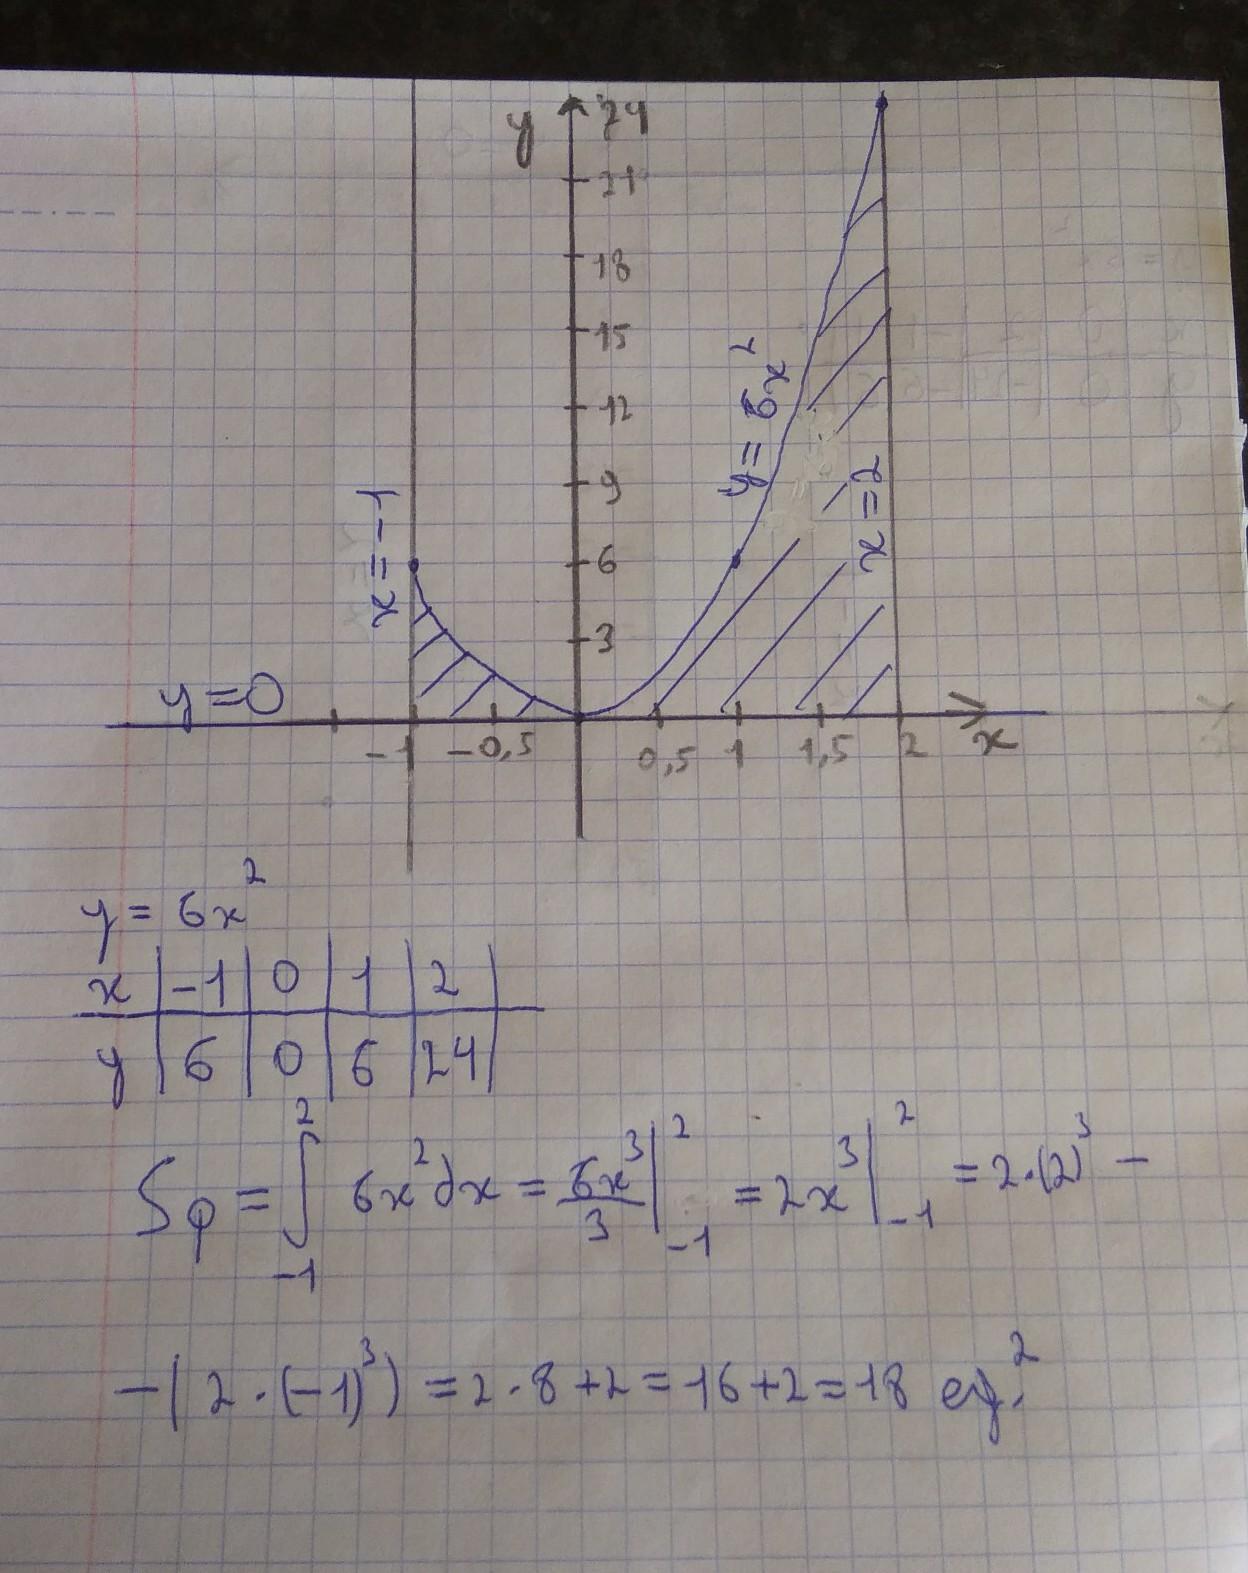 y 24
21
18
15
12
9
6
3
y = 6x²
x = -1
x = 2
y = 0
-1 -0,5 0,5 1 1,5 2 x
y = 6x²
x | -1 | 0 | 1 | 2
y | 6 | 0 | 6 | 24
Sφ = ∫₋₁² 6x²dx = 6x³/3 |₋₁² = 2x³ |₋₁² = 2·(2)³ −
−(2·(−1)³) = 2·8+2 = 16+2 = 18 ед.²